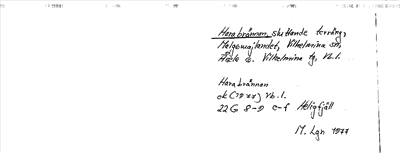 Harabrännan, sluttande terräng,
Malgomajlandet, Vilhelmina sn,
Åsele o. Vilhelmina tg, Vb.l.
Harabrännan
ek (1977) Vb.l.
22G 8-9 e-f Heligfjäll
M. Lgn 1977